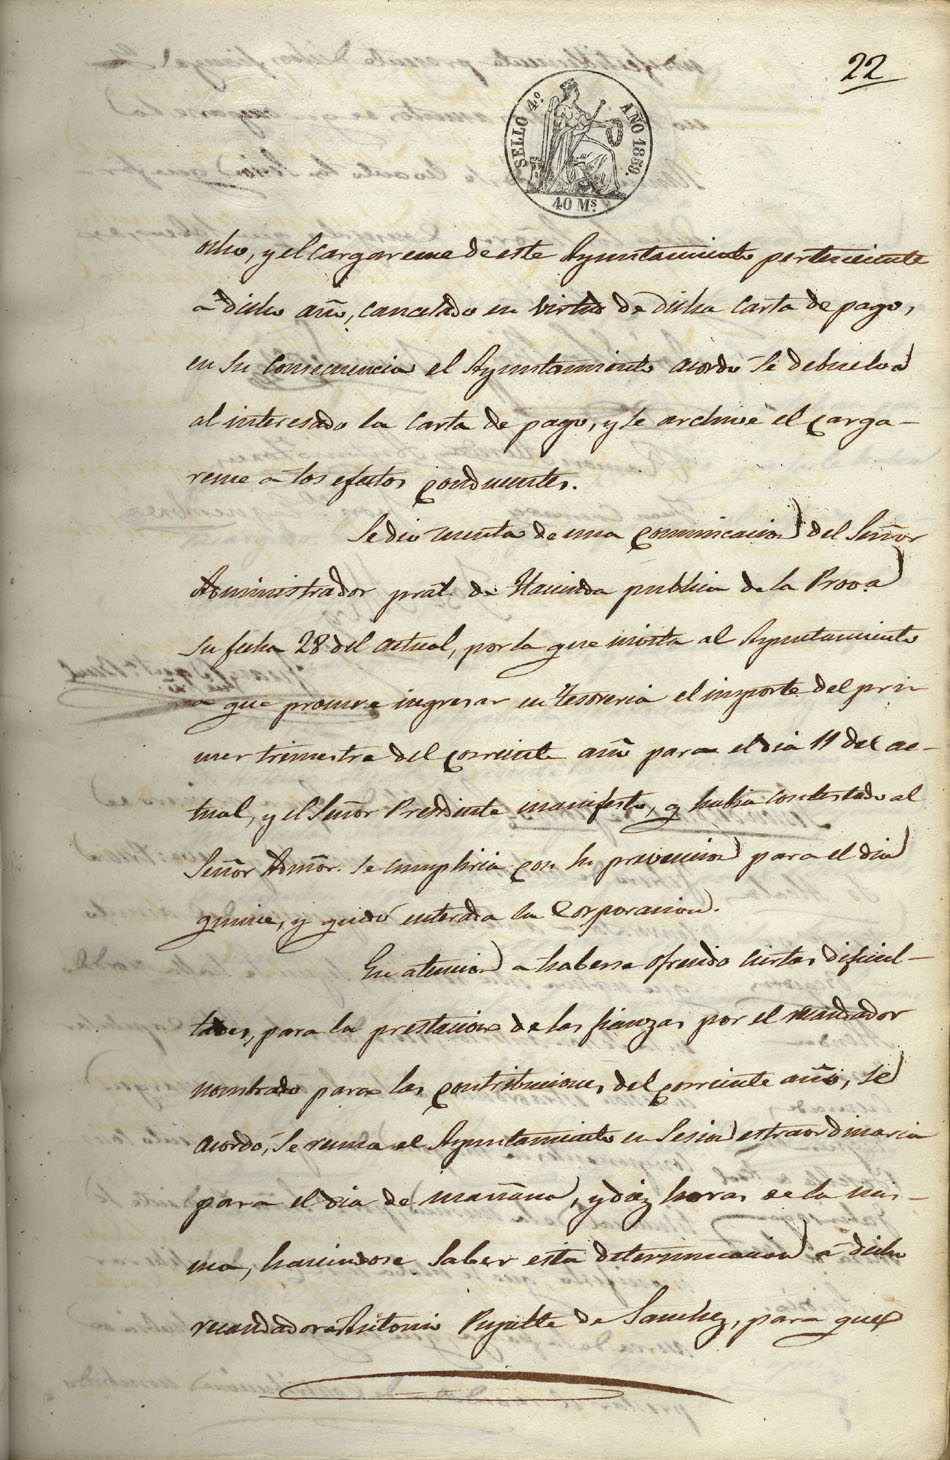 22
SELLO 4º AÑO 1859.
40 Ms
ocho, y el cargareme de este Ayuntamiento perteneciente
a dicho año, cancelado en virtud de dicha carta de pago,
en su consecuencia el Ayuntamiento acordó se debuelva
al interesado la carta de pago, y se archive el carga-
reme a los efectos conducentes.
Se dio cuenta de una comunicacion del Señor
Administrador pral. de Hacienda publica de la Prov.a
su fecha 28 del actual, por la que invita al Ayuntamiento
a que promueva ingresar en Tesoreria el importe del pri-
mer trimestre del corriente año para el dia 11 del ac-
tual, y el Señor Presidente manifesto, q habia contestado al
Señor Admõr. se cumpliria con su prevencion para el dia
quince, y quedó enterada la Corporacion.
En atencion a haberse ofrecido ciertas dificul-
tades, para la prestacion de las fianzas por el recaudador
nombrado para las contribuciones del corriente año, se
acordó, se reuna el Ayuntamiento en Sesion estraordinaria
para el dia de mañana, y diez horas de la mis-
ma, haciendose saber esta determinacion a dicho
recaudador Antonio de Sanchez, para que